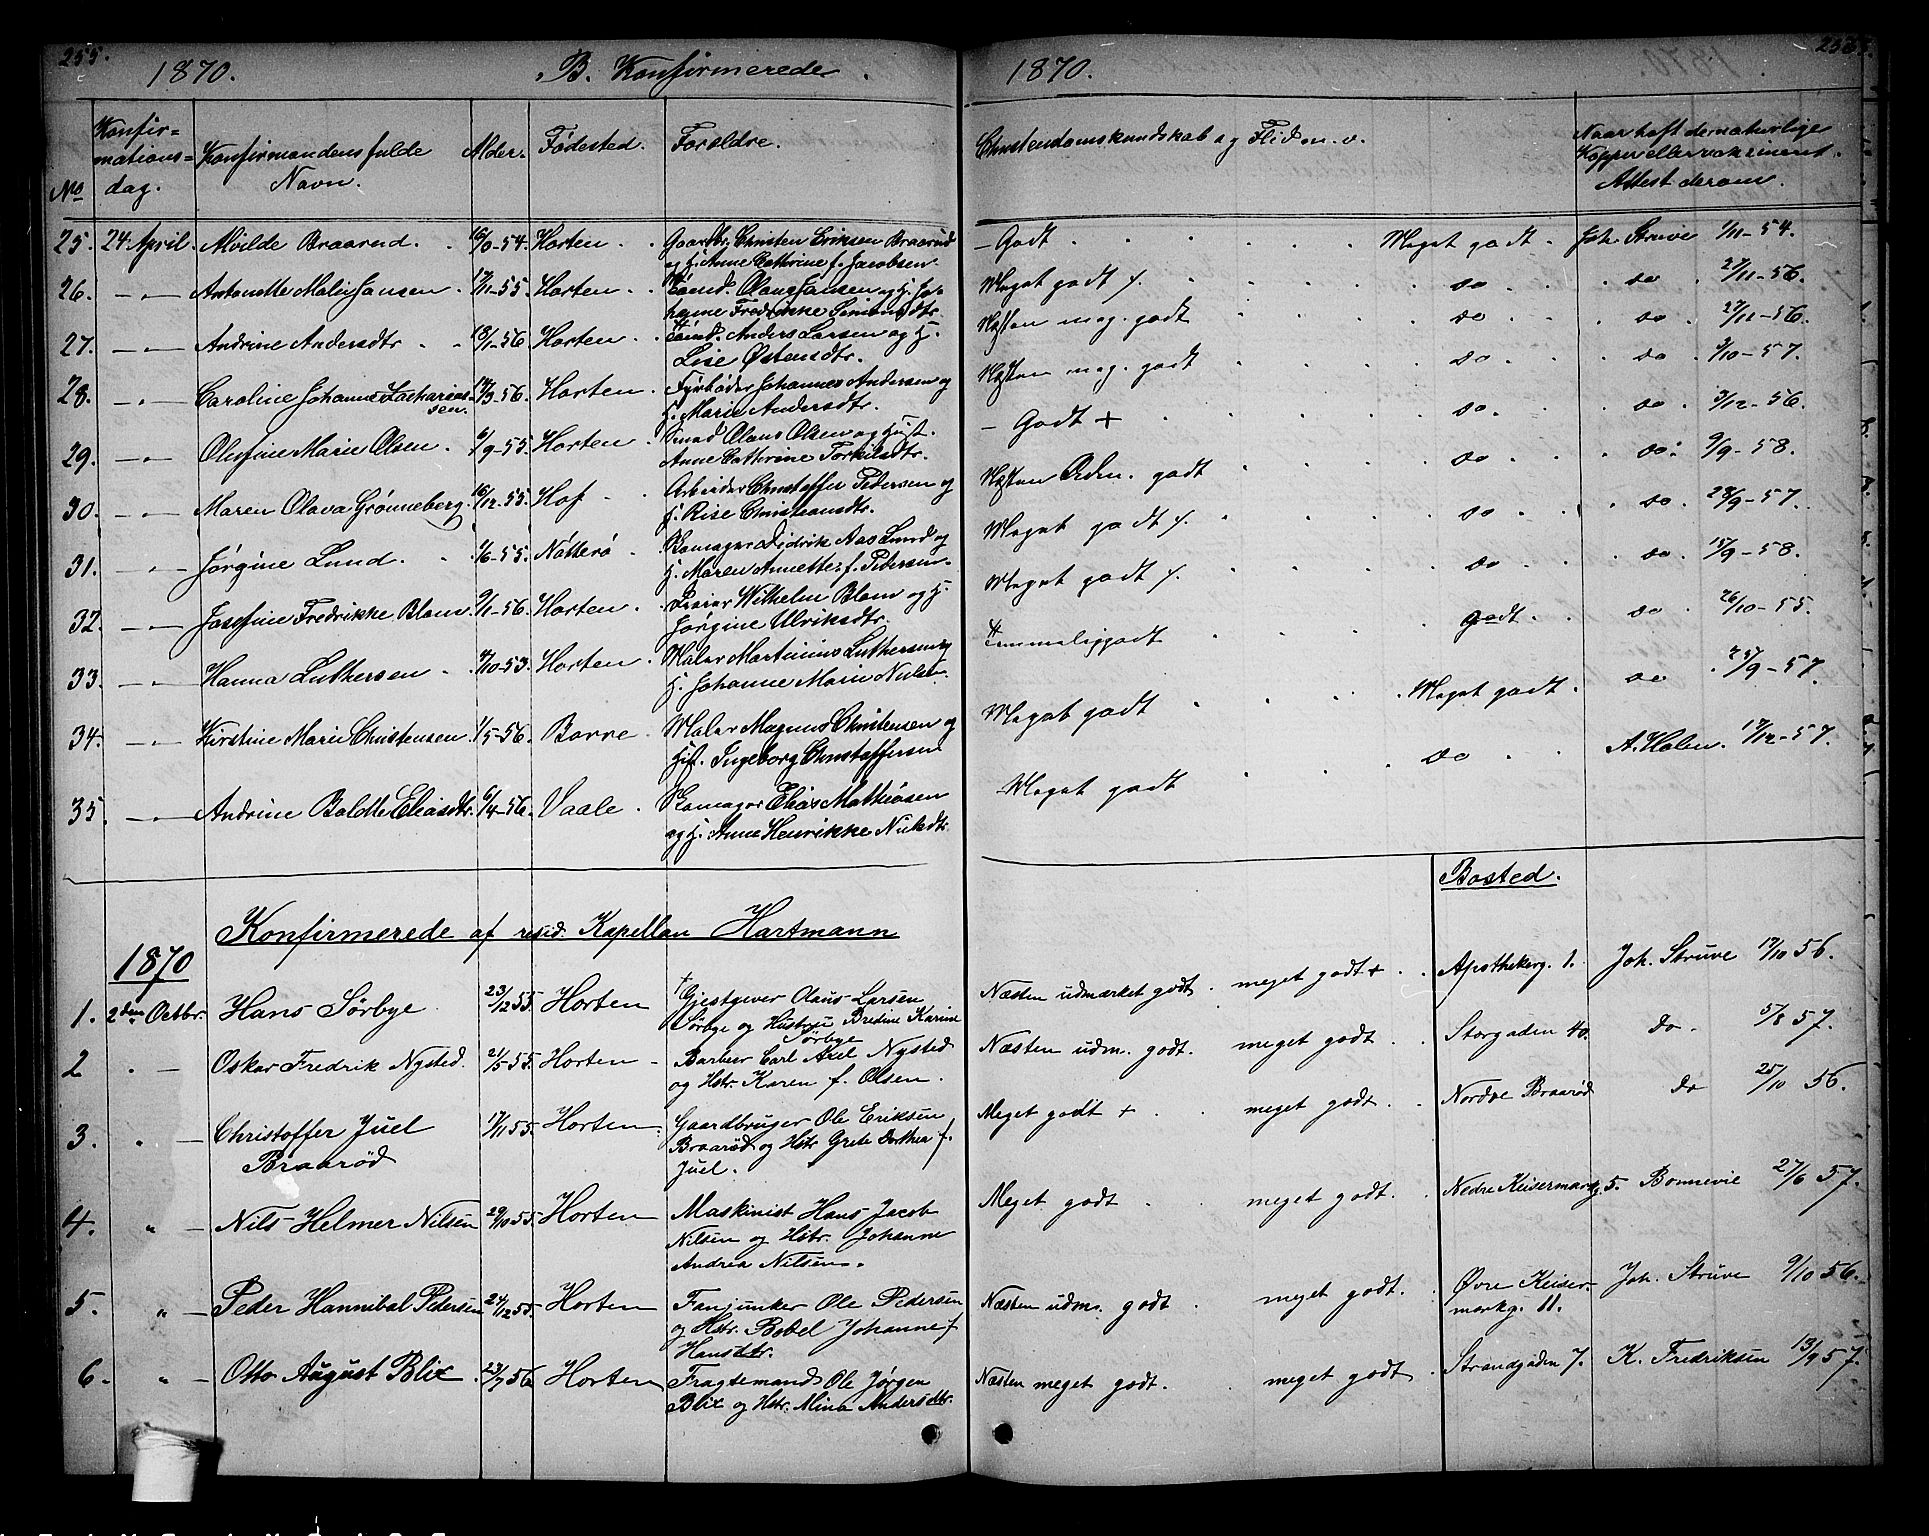 255.
1870. B. Konfirmerede.
No
Konfir=
mations=
dag.
Konfirmandens fulde
Navn.
Alder. Fødested. Forældre.
25. 24 April. Alvilde Braarud. 54. Horten. Gaardbr. Christen Eriksen Braarud
og H. Anne Cathrine f. Jacobsen.
26. — " — Antonette Malie Jansen. 17/11-55. Horten. Tømd. Olaus Jansen og H. Jo-
hanne Fredrikke Simensdtr.
27. — " — Andrine Andersdtr. 18/1-56. Horten. Tømd. Anders Larsen og H.
Lise Østensdtr.
28. — " — Caroline Johanne Zacharias-
sen. 3-56. Horten. Fyrbøder Johannes Andersen og
H. Marie Andersdtr.
29. — " — Olufine Marie Olsen. 6/9-55. Horten. Smed Olaus Olsen og Hust.
Anne Cathrine Torkildsdtr.
30. — " — Maren Olava Grønneberg. 16/12-55. Hof. Arbeider Christoffer Pedersen og
H. Rise Christiansdtr.
31. — " — Jørgine Lund. 1/6-55. Nøtterø. Skomager Didrik Aas Lund og
H. Maren Annette f. Pedersen.
32. — " — Josefine Fredrikke Blom. 9/1-56. Horten. Dreier Wilhelm Blom og H.
Jørgine Ulriksdtr.
33. — " — Hanna Luthersen. 4/10-53. Horten. Maler Martinius Luthersen og
H. Johanne Marie Nilsen.
34. — " — Kirstine Marie Christensen. 1/5-56. Borre. Maler Magnus Christensen og
H. f. Ingeborg Christoffersen
35. — " — Andrine Bolette Eliasdtr. 6/4-56. Vaale. Skomager Elias Mathisen
og H. Anne Henrikke Nilsdtr.
Konfirmerede af resid. Kapellan Hartmann
1870
1. 2den Octbr. Hans Sørbye. 23/12 55. Horten † Gjestgiver Olaus Larsen
Sørbye og Hustru Bredine Karine
Sørbye
2 " — Oskar Fredrik Nysted. 21/5-55. Horten — Barber Carl Axel Nysted
og Hstr. Karen f. Olsen.
3. " — Christoffer Juel
Braarød 17/11 55. Horten. Gaardbruger Ole Eriksen
Braarød og Hstr. Grete Dorthea f.
Juel.
4. " — Nils Helmer Nilsen 29/10 55. Horten Maskinist Hans Jacob
Nilsen og Hstr. Johanne
Andrea Nilsen.
5. " — Peder Hannibal Pedersen 24/12 55. Horten Fanjunker Ole Pedersen
og Hstr. Bebel Johanne f.
Hansdtr.
6. " — Otto August Blix. 23/7 56. Horten Fragtemand Ole Jørgen
Blix og Hstr. Mina Andersdtr.
1870.
Christendomskundskab og Flid m. v.
Naar haft de naturlige
Kopper eller vakcineret.
Attest derom.
— Godt. Meget godt. Joh. Struve 1/11-54.
Meget godt /. do do 27/11-56.
Næsten meg. godt do do 27/11-56.
Næsten meg. godt do do 9/10-57.
— Godt + do. do. 3/12-56.
Næsten Orden. godt do do. 9/9-58.
Meget godt /. do do. 28/9-57.
Meget godt /. do do. 15/9-58.
Temmelig godt godt. do. 26/10-55.
Meget godt Meget godt. do 25/9-57.
Meget godt do A. Holen. 17/12-57.
Bosted.
Næsten udmærket godt. meget godt + Apothekerg. 1. Joh. Struve 17/10 56.
Næsten udm. godt. meget godt. Storgaden 40. do. 5/8 57.
Meget godt + meget godt. Nordre Braarød do 25/10 56.
Meget godt. meget godt. Nedre Keisermarkg. 5. Bonnevie 27/6 57.
Næsten udm. godt meget godt. Øvre Keiser-
markg. 11. Joh. Struve 9/10 56.
Næsten meget godt. meget godt. Strandgaden 7. K. Fredriksen 13/9 57.